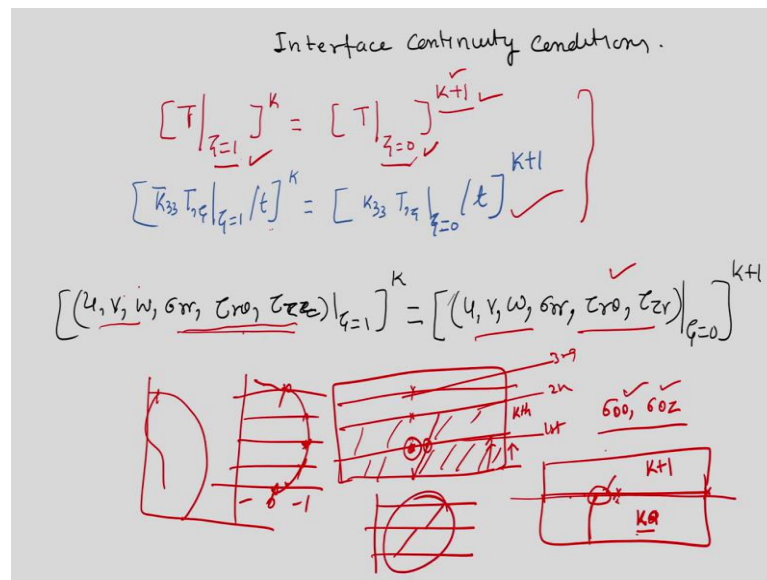 Interface continuity conditions.
[T|ζ=1]^k = [T|ζ=0]^k+1
[K33 T,ζ|ζ=1/t]^k = [K33 T,ζ|ζ=0/t]^k+1
[(u, v, w, σrr, τrθ, τzr)|ζ=1]^k = [(u, v, w, σrr, τrθ, τzr)|ζ=0]^k+1
kth
1st
σθθ, σθz
k+1
- 0 -1